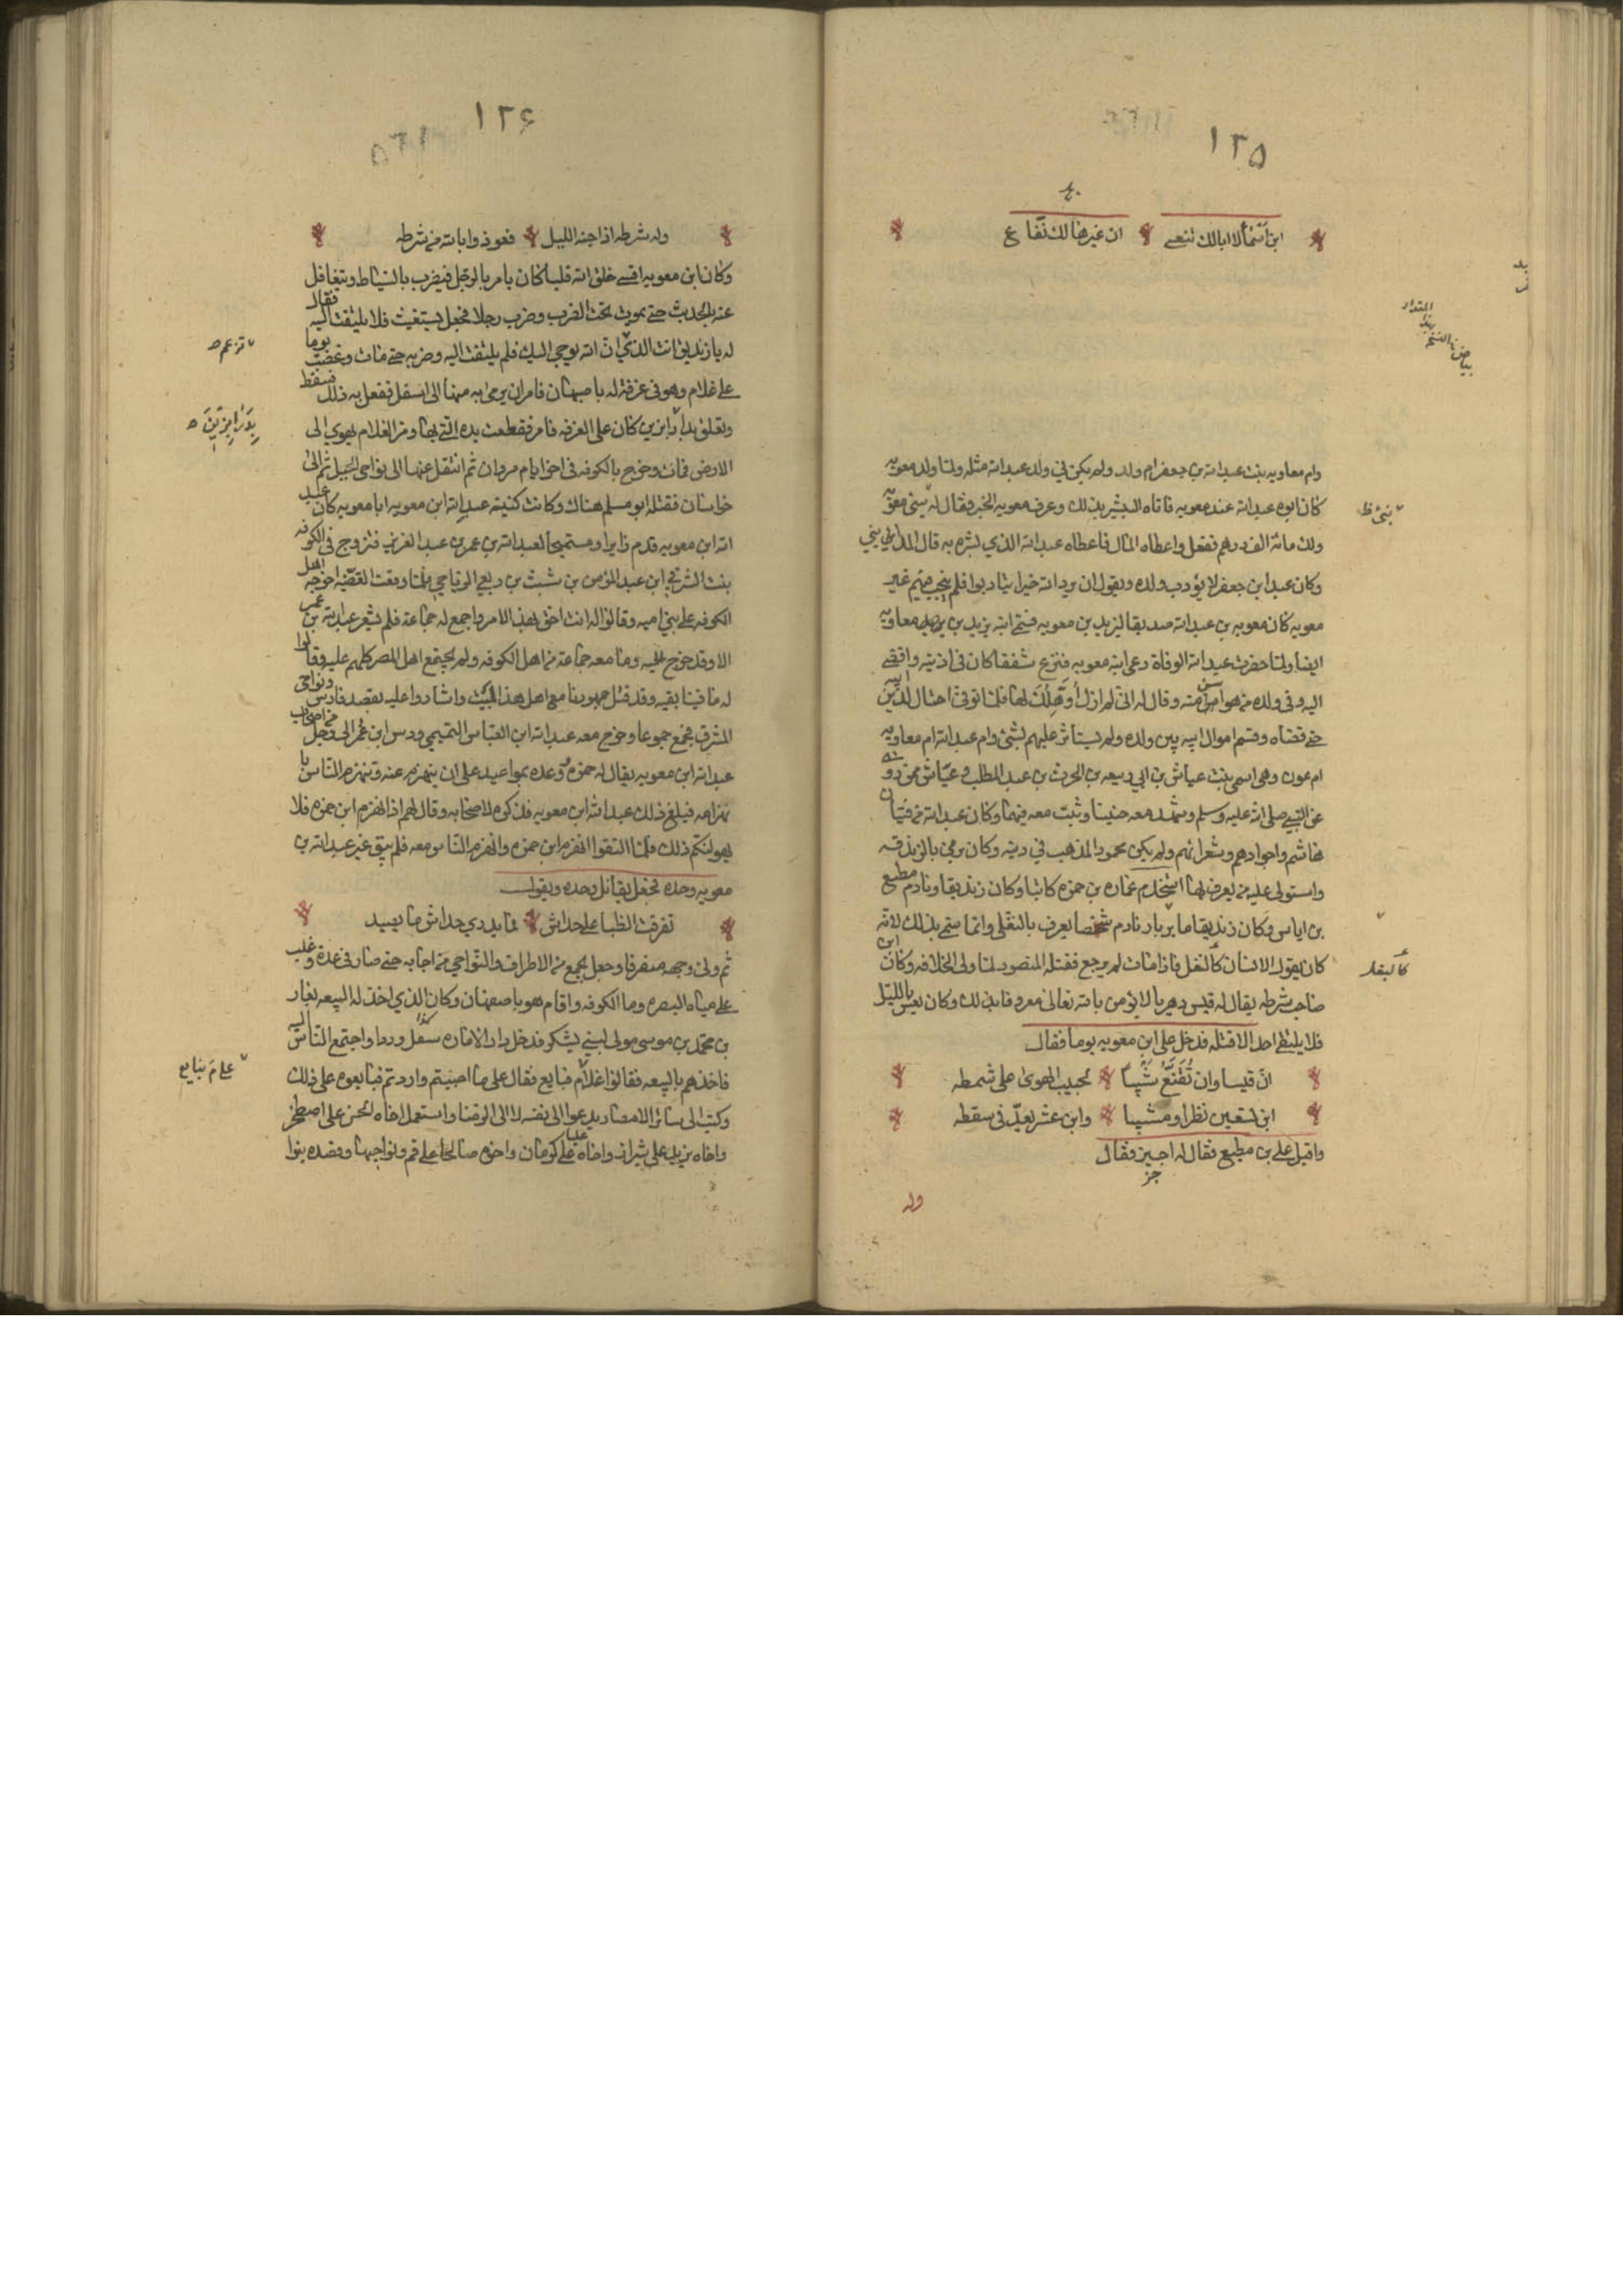 ١٢٥
ابن اسما لا ابالك تنعى ان غيرها لك نفاع
وام معاوية بنت عبد الله بن جعفر ام ولد ولم يكن في ولد عبد الله مثله ولما ولد معويه
كان ابوه عبد الله عند معويه فاتاه البشير بذلك وعرف معويه الخبر فقال له سمى معويه
بنى ظ
ولك مائة الف درهم ففعل واعطاه المال فاعطاه عبد الله الذي بشره به قال المدايني
وكان عبد ابن جعفر لا يؤدب ولده ويقول ان يرد الله خيرا يتادبوا فلم ينجب منهم غير
معويه كان معويه بن عبد الله صديقا ليزيد بن معويه فسمى ابنه يزيد بن معاويه
ايضا ولما حضرت عبد الله الوفاة دعى ابنه معويه فنزع شنفا كان في اذنيه واوصى
اليه وفي ولده من هو اسن منه وقال له انى لم ازل أؤهلك لها فلما توفى احتال لدين ابيه
حتى قضاه وقسم اموال ابيه بين ولده ولم يستاثر عليهم بشئ وام عبد الله ام معاويه
ام عون وهى اسمى بنت عياش بن ابي ربيعه بن الحرث بن عبد المطلب وعياش ممن روى
عن النبي صلى الله عليه وسلم وشهد معه حنينا وثبت معه فيها وكان عبد الله من فتيان
هاشم واجوادهم وشعرائهم ولم يكن محمود المذهب في دينه وكان يرمى بالزندقه
واستولى عليه من يعرف بها استخدم عماره بن حمزه كاتبا وكان زنديقا ونادم مطيع
بن اياس وكان زنديقا مابر بار نادم شخصا يعرف بالبقلى وانما سمى بذلك لانه
كان يقول الانسان كالبغل فاذا مات لم يرجع فقتله المنصور لما ولى الخلافه وكان ابن
كالبقله
صاحب شرطه يقال له قيس دهريا لا يؤمن بالله تعالى معروفا بذلك وكان يعس بالليل
فلا يلقى احدا الا قتله فدخل على ابن معويه يوما فقال
ان قيسا وان تقنع شيبا لحبيب الهوى على شمطه
ابن تسعين نظرا ومشيبا وابن عشر يعد في سقطه
واقبل على بن مطيع فقال له اجيز فقال
وله
١٢۶
وله شرطه اذا جنه الليل فعوذوا بالله من شرطه
وكان ابن معويه اقسى خلق الله قلبا كان يامر بالرجل فيضرب بالسياط ويتغافل
عنه بالحديث حتى يموت تحت الضرب وضرب رجلا فجعل يستغيث فلا يلتفت اليه فقال
له يا زنديق انت الذي ان الله يوحى اليك فلم يلتفت اليه وضربه حتى مات وغضب يوما
تزعم ح
على غلام وهو في غرفة له باصبهان فامر ان يرمى به منها الى اسفل ففعل به ذلك فسقط
وتعلق بدرابزين كان على الغرفه فامر فقطعت يده التى بها ومر الغلام يهوي الى
بِدَرَابِزِيْنَ ح
الارض فمات وخرج بالكوفه في اخر ايام مروان ثم انتقل عنها الى نواحى الجبل ثم الى
خراسان فقتله ابو مسلم هناك وكانت كنيته عبد الله ابن معويه ابا معويه كان عبد
الله ابن معويه قدم زايرا ومستميحا لعبد الله بن عمر بن عبد العزيز فتزوج في الكوفه
بنت الشرقي ابن عبد المؤمن بن شبث بن ربعي الرياحي فلما وقعت القضيه اخرجه اهل
الكوفه على بني اميه وقالوا له انت احق بهذا الامر واجمع له جماعة فلم يشعر عبد الله بن عمر
الا وقد خرج عليه ومعه جماعة من اهل الكوفه ولم يجتمع اهل المصر كلهم عليه وقالوا
له ما فينا بقيه وقد قتل جمهورنا مع اهل هذا البيت واشاروا عليه بقصد فارس ونواحى
المشرق فجمع جموعا وخرج معه عبد الله ابن العباس التميمى ودس ابن عمر الى رجل من اصحاب
عبد الله ابن معويه يقال له حمزه ووعده بمواعيد على ان ينهزم عنه وينهزم الناس با
نهزامه فبلغ ذلك عبد الله ابن معويه فذكره لاصحابه وقال لهم اذا انهزم ابن حمزه فلا
يهولنكم ذلك فلما التقوا انهزم ابن حمزه وانهزم الناس معه فلم يبق غير عبد الله بن
معويه وحده فجعل يقاتل وحده ويقول
تفرقت الظبا على خداش فما يدري خداش ما يصيد
ثم ولى وجهه منصرفا وجعل يجمع من الاطراف والنواحى من اجابه حتى صار في عدة وغلب
على مياه البصره وما الكوفه واقام هو باصفهان وكان الذي اخذ له البيعه
بن محمد بن موسى مولى لبني يشكر فدخل دار الاماره واجتمع الناس اليه
فاخذهم بالبيعه فقالوا علام نبايع فقال على ما احببتم واردتم فبايعوه على ذلك
علامَ نبايع
وكتب الى سائر الامصار يدعوا الى نفسه لا الى الرضا واستعمل اخاه الحسن على اصطخر
واخاه يزيد على شيراز واخاه عليا على كرمان واخوه صالحا على قم ونواحيها وقصده بنوا